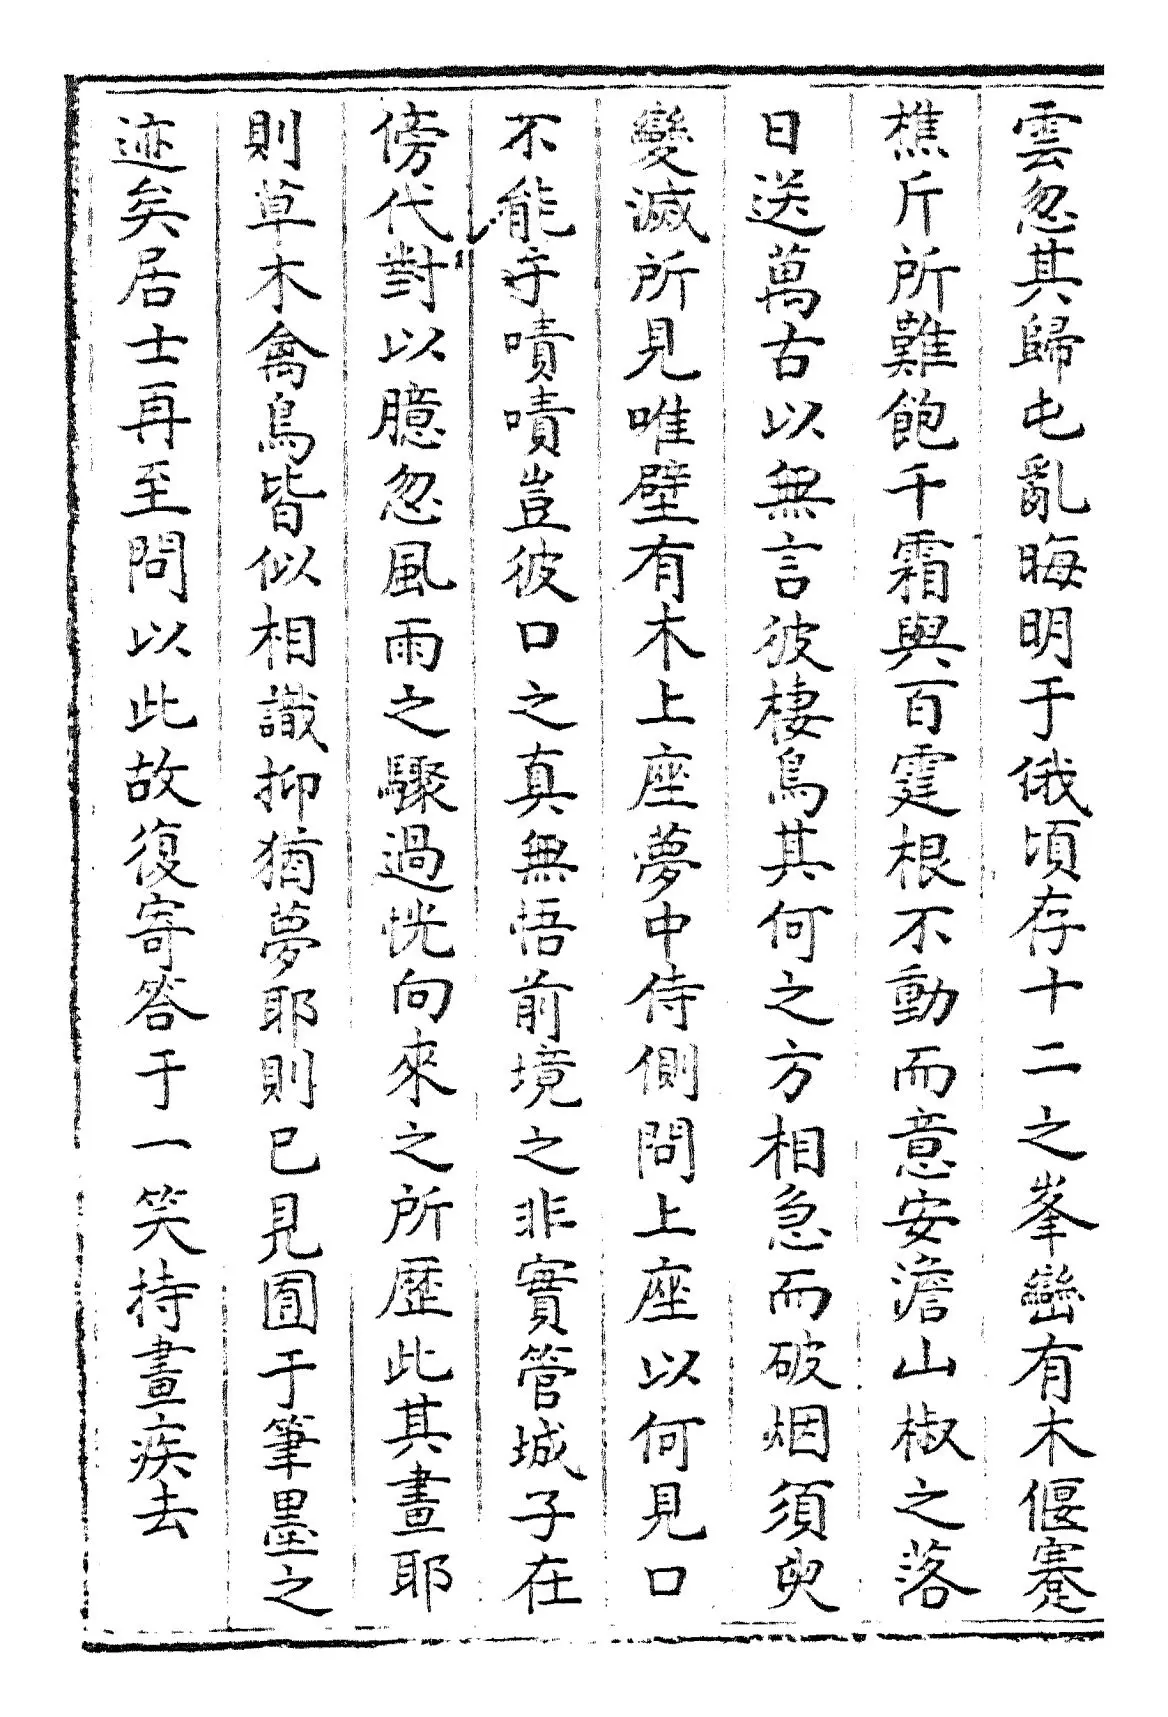 雲忽其歸屯亂晦明于俄頃存十二之峯巒有木偃蹇
樵斤所難飽千霜與百霆根不動而意安澹山椒之落
日送萬古以無言彼棲鳥其何之方相急而破烟須臾
變滅所見唯壁有木上座夢中侍側問上座以何見口
不能字嘖嘖豈彼口之真無悟前境之非實管城子在
傍代對以臆忽風雨之驟過恍向來之所歷此其畫耶
則草木禽鳥皆似相識抑猶夢耶則已見囿于筆墨之
迹矣居士再至問以此故復寄答于一笑持畫疾去